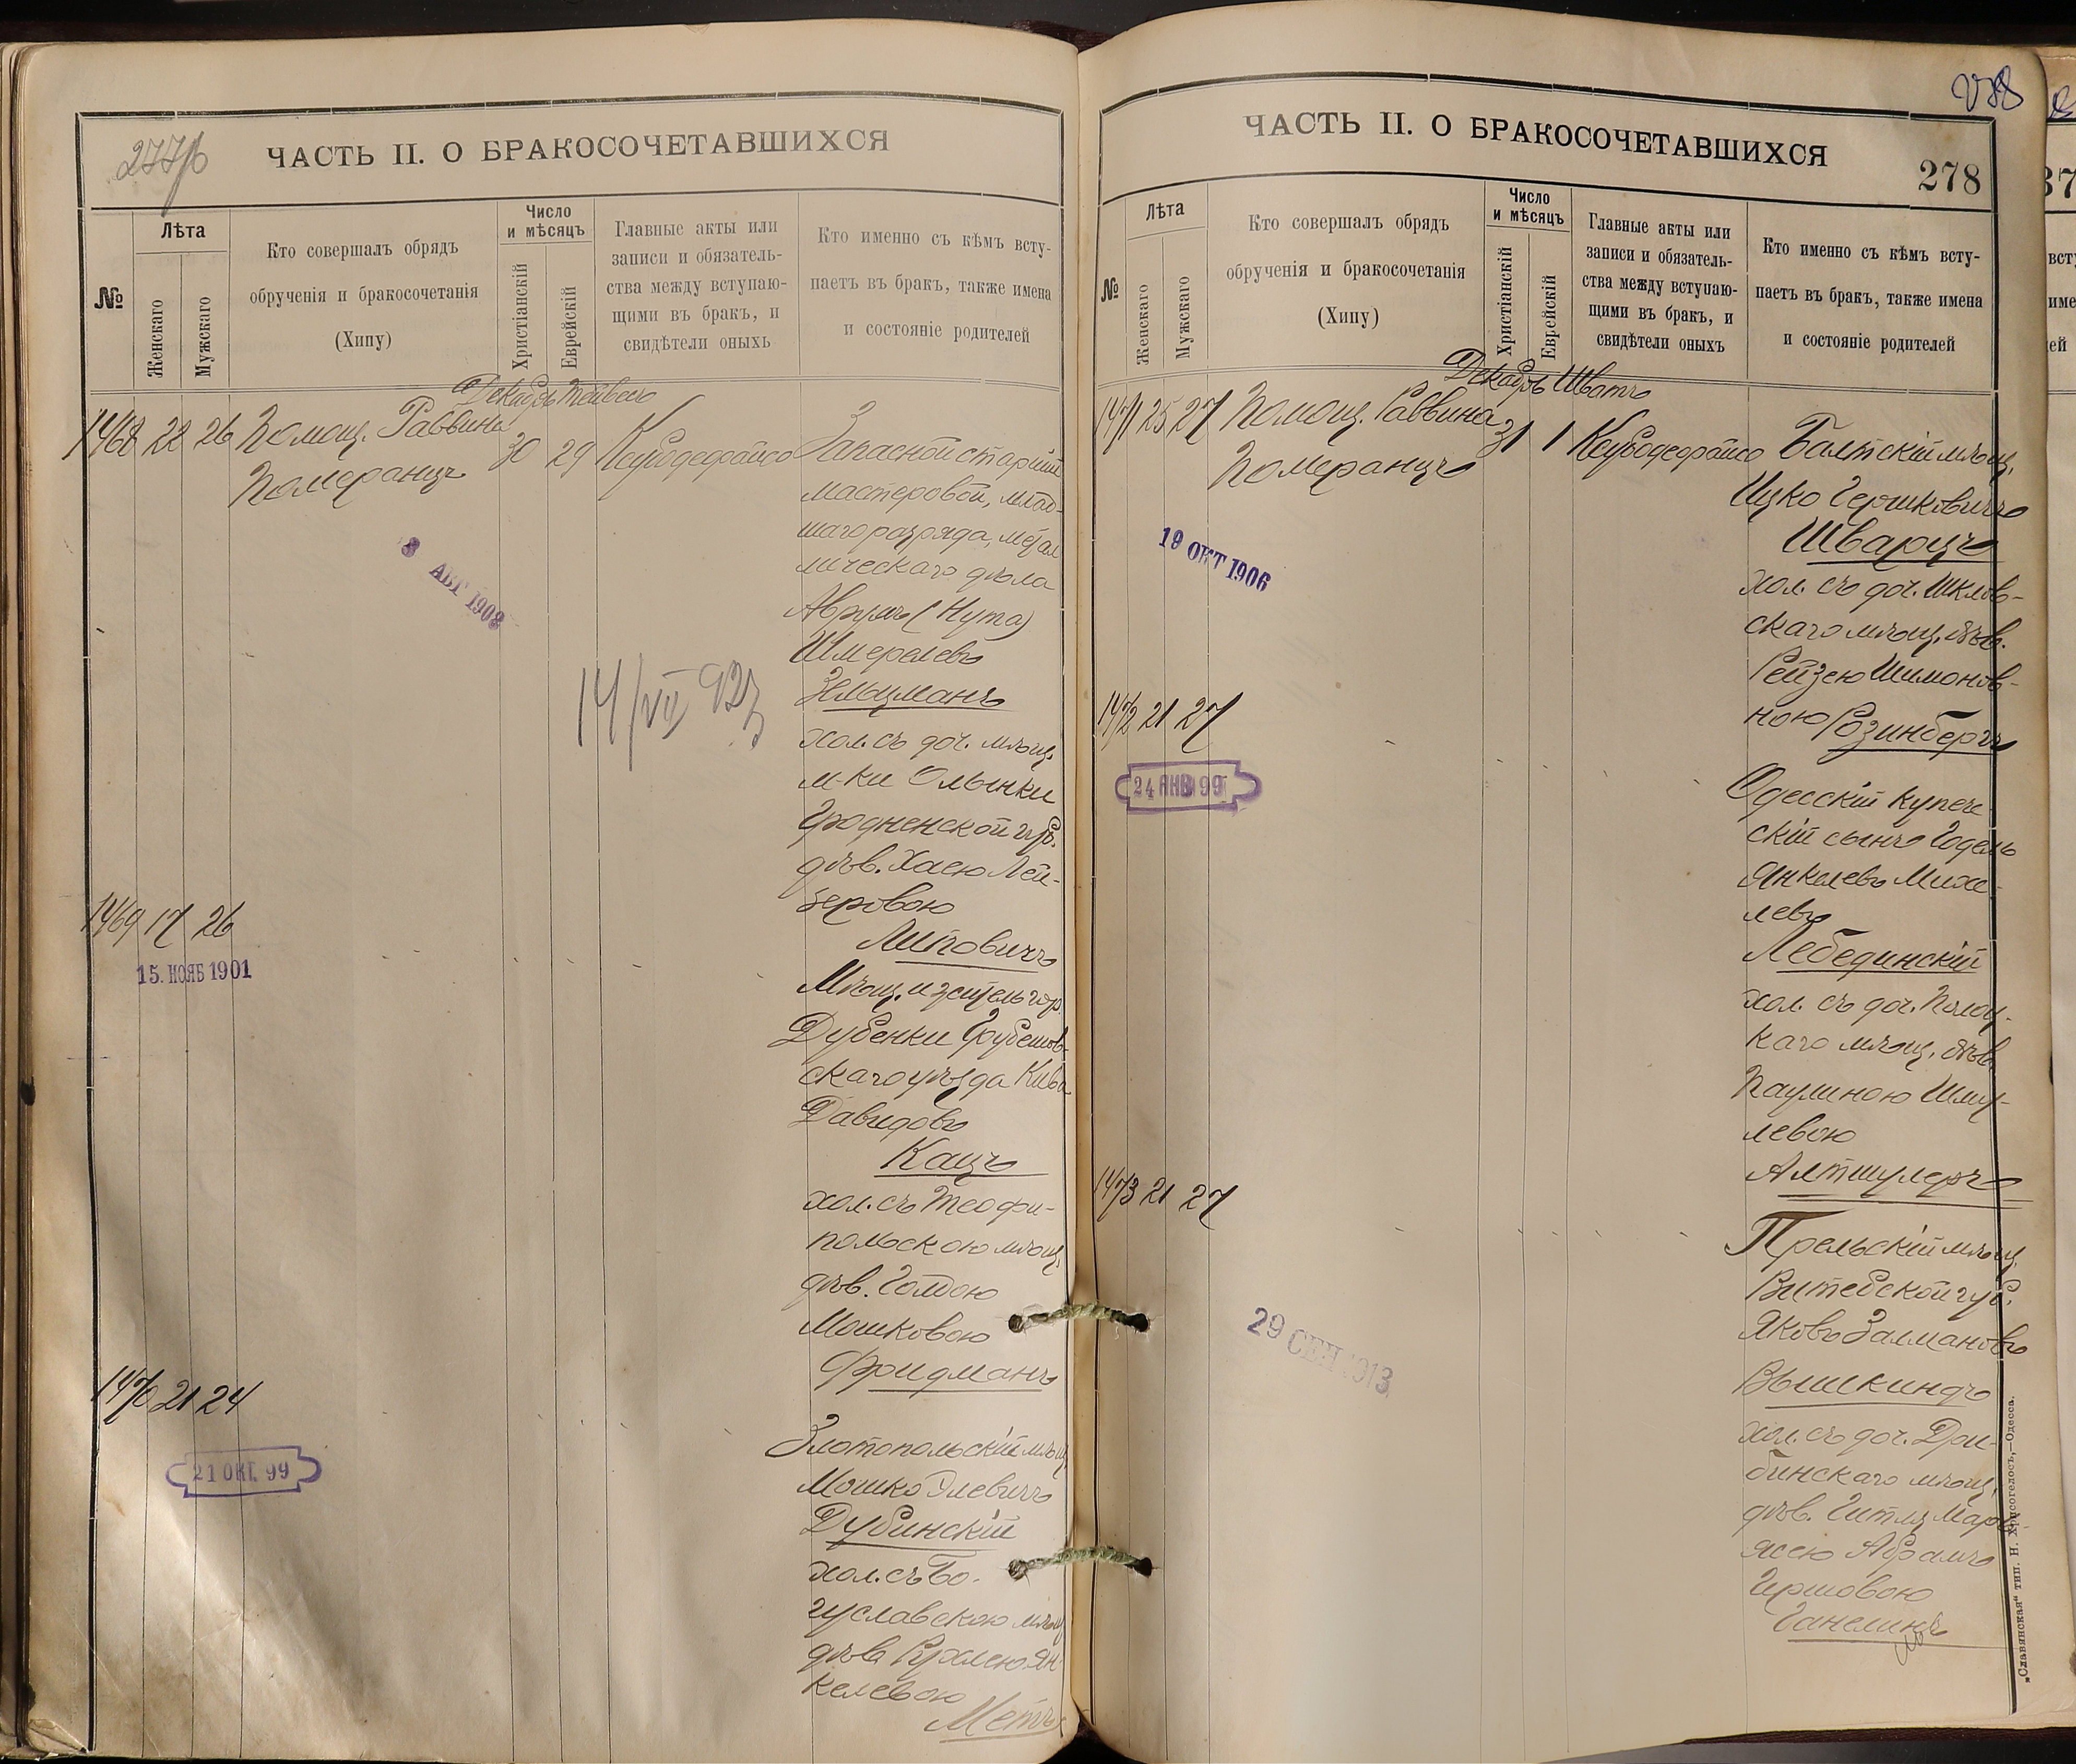 277/б
ЧАСТЬ II. О БРАКОСОЧЕТАВШИХСЯ
№
Лѣта
Женскаго
Мужскаго
Кто совершалъ обрядъ
обрученія и бракосочетанія
(Хипу)
Число
и мѣсяцъ
Христіанскій
Еврейскій
Главные акты или
записи и обязатель-
ства между вступаю-
щими въ бракъ, и
свидѣтели оныхъ
Кто именно съ кѣмъ всту-
паетъ въ бракъ, также имена
и состояніе родителей
Декабрь Тейвесъ
1468 22 26 Помощ. Раввина 30 29
Померанцъ
Запасной старшій
мастеровой, млад-
шаго разряда, метал
лическаго дѣла
Аврумъ (Нута)
Шмерелевъ
Зельцманъ
хол. съ доч. мѣщ.
м-ки Олынки
Гродненской губ.
дѣв. Хаею Лей-
зеровою
Липовичъ
9 АВГ 1902
14/VII 923
1469 17 26
15. НОЯБ 1901
Мѣщ. и житель гор.
Дубенки Грубешов-
скаго уѣзда Кива
Давидовъ
Кацъ
хол. съ Теофи-
польскою мѣщ.
дѣв. Голдою
Мошковою
Фридманъ
1470 21 24
21 ОКТ. 99
Златопольскій мѣщ.
Мошко Элевичъ
Дубинскій
хол. съ Бо-
гуславскою мѣщ
дѣв. Рухлею Ян-
келевою
Метъ
288
ЧАСТЬ II. О БРАКОСОЧЕТАВШИХСЯ
278
№
Лѣта
Женскаго
Мужскаго
Кто совершалъ обрядъ
обрученія и бракосочетанія
(Хипу)
Число
и мѣсяцъ
Христіанскій
Еврейскій
Главные акты или
записи и обязатель-
ства между вступаю-
щими въ бракъ, и
свидѣтели оныхъ
Кто именно съ кѣмъ всту-
паетъ въ бракъ, также имена
и состояніе родителей
Декабрь Шватъ
1471 25 27 Помощ. Раввина 31 1
Померанцъ
19 ОКТ 1906
Балтскій мѣщ.
Ицко Гершковичъ
Шварцъ
хол. съ доч. Шклов-
скаго мѣщ. дѣв.
Рейзею Шимонов-
ною Розинбергъ
1472 21 27
24 ЯНВ 99
Одесскій купече-
скій сынъ Годель
Янкелевъ Михе-
левъ
Лебединскій
хол. съ доч. Полоц-
каго мѣщ. дѣв.
Паулиною Шму-
левою
Алтшулеръ
1473 21 27
29 СЕН 1913
Прельскій мѣщ.
Витебской губ.
Яковъ Залмановъ
Вышкиндъ
хол. съ доч. Дри-
бинскаго мѣщ.
дѣв. Гитля Марь
ясею Абрамъ
Гиршовою
Ганелинъ
„Славянская“ тип. Н. Хрисогелосъ,—Одесса.